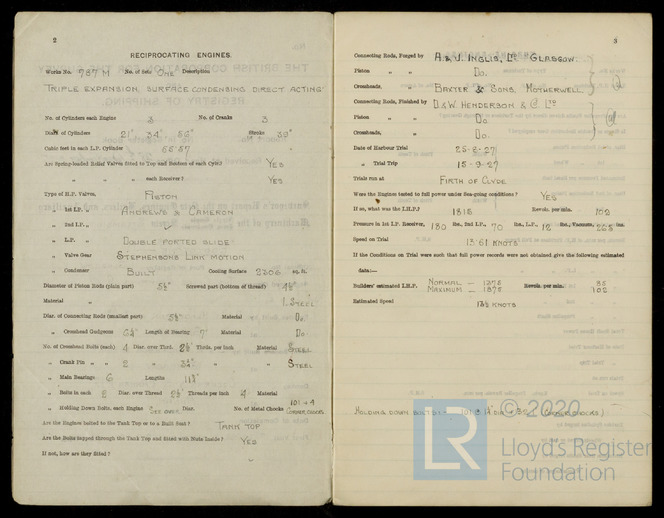 2
RECIPROCATING ENGINES.
Works No. 787 M No. of Sets One Description
TRIPLE EXPANSION, SURFACE CONDENSING DIRECT ACTING
No. of Cylinders each Engine 3 No. of Cranks 3
Diars. of Cylinders 21" 34" 56" Stroke 39"
Cubic feet in each L.P. Cylinder 55·57
Are Spring-loaded Relief Valves fitted to Top and Bottom of each Cylr.? YES
" " " each Receiver? YES
Type of H.P. Valves, PISTON
" 1st I.P. " ANDREWS & CAMERON
" 2nd I.P. "
" L.P. " DOUBLE PORTED SLIDE
" Valve Gear STEPHENSONS LINK MOTION
" Condenser BUILT Cooling Surface 2306 sq. ft.
Diameter of Piston Rods (plain part) 5½" Screwed part (bottom of thread)
Material " I. STEEL
Diar. of Connecting Rods (smallest part) 5½" Material Do.
" Crosshead Gudgeons Length of Bearing 7" Material Do
No. of Crosshead Bolts (each) 4 Diar. over Thrd. Thrds. per inch Material STEEL
" Crank Pin " " 2 " " STEEL
" Main Bearings 6 Lengths
" Bolts in each 2 Diar. over Thread Threads per inch 4 Material
" Holding Down Bolts, each Engine SEE OVER Diar. No. of Metal Chocks 101 + 4
Are the Engines bolted to the Tank Top or to a Built Seat? TANK TOP
Are the Bolts tapped through the Tank Top and fitted with Nuts Inside? YES
If not, how are they fitted?
3
Connecting Rods, Forged by A. & J. INGLIS, LD GLASGOW.
Piston " " Do.
Crossheads, " BAXTER & SONS, MOTHERWELL
Connecting Rods, Finished by D. & W. HENDERSON & Co LTD
Piston " " Do
Crossheads, " Do.
Date of Harbour Trial 25-8-27
" Trial Trip 15-9-27
Trials run at FIRTH OF CLYDE
Were the Engines tested to full power under Sea-going conditions? YES
If so, what was the I.H.P.? 1818 Revols. per min. 102
Pressure in 1st I.P. Receiver, 180 lbs., 2nd I.P., 70 lbs., L.P., 12 lbs., Vacuum, ins.
Speed on Trial 13·61 KNOTS
If the Conditions on Trial were such that full power records were not obtained give the following estimated
data:—
Builders' estimated I.H.P. NORMAL — 1375 Revols. per min.
MAXIMUM — 1875 102
Estimated Speed KNOTS
© 2020
LR
Lloyd's Register
Foundation